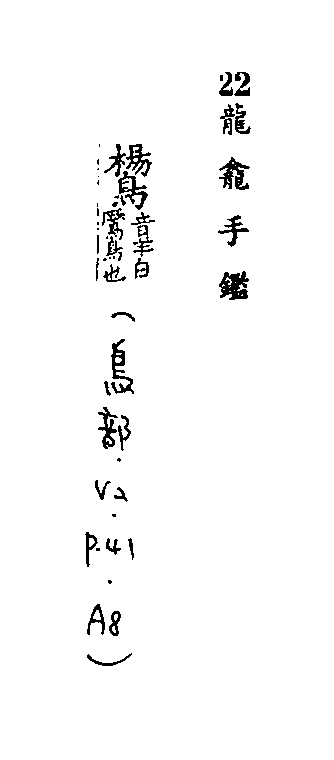 22龍龕手鑑
音羊白
鷢鳥也
(鳥部.V2.P.41.A8)